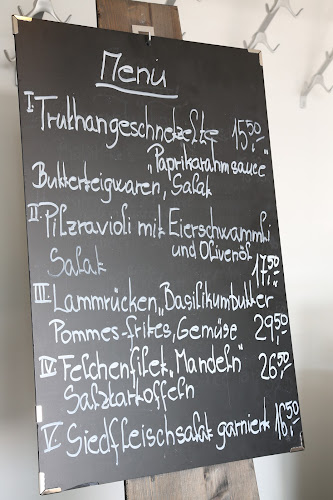 Menu
I Truthangeschnetzeltes 15.50
„Paprikarahmsauce"
Butterteigwaren, Salat
II Pilzravioli mit Eierschwammli
und Olivenöl
Salat 17.50
III Lammrücken „Basilikumbutter
Pommes-frites, Gemüse 29.50
IV Felchenfilet „Mandeln" 26.50
Salzkartoffeln
V Siedfleischsalat garniert 16.50